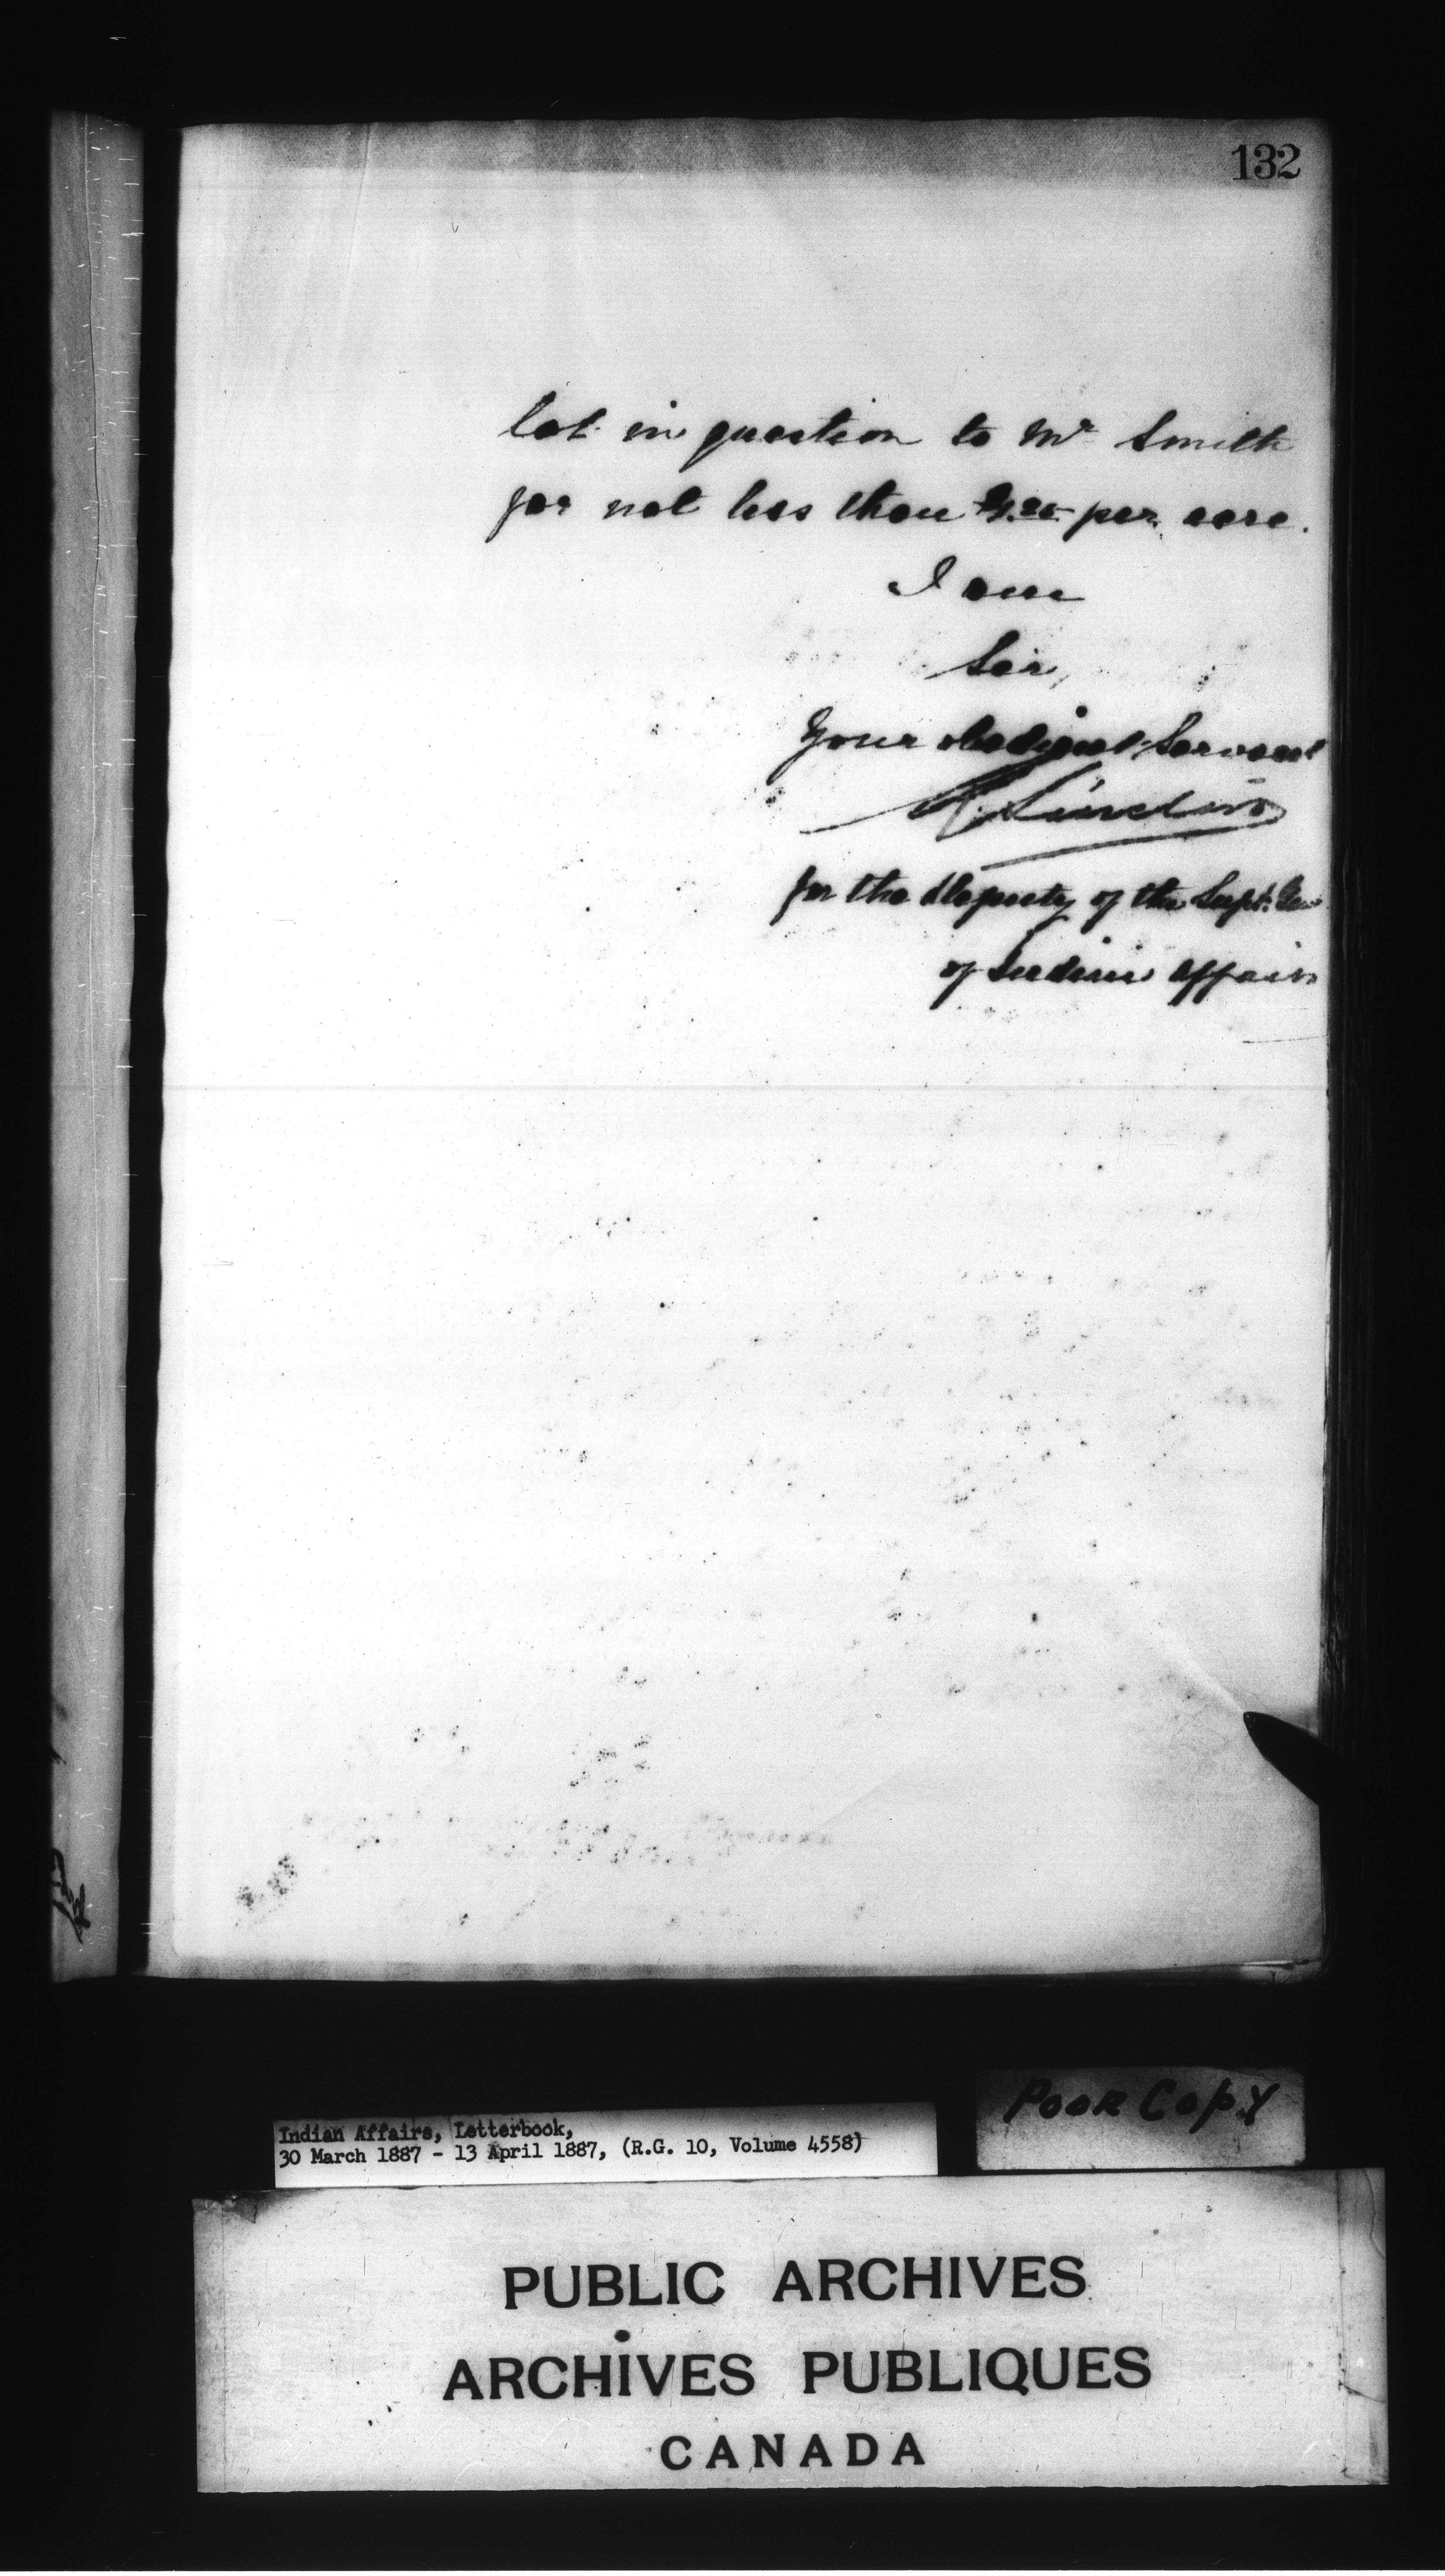 132
lot in question to Mr Smith
for not less than per acre.
I am
Sir,
Your obedient Servant
R. Sinclair
for the Deputy of the Supt. Gen
of Indian Affairs
Indian Affairs, Letterbook,
30 March 1887 - 13 April 1887, (R.G. 10, Volume 4558)
POOR COPY
PUBLIC ARCHIVES
ARCHIVES PUBLIQUES
CANADA